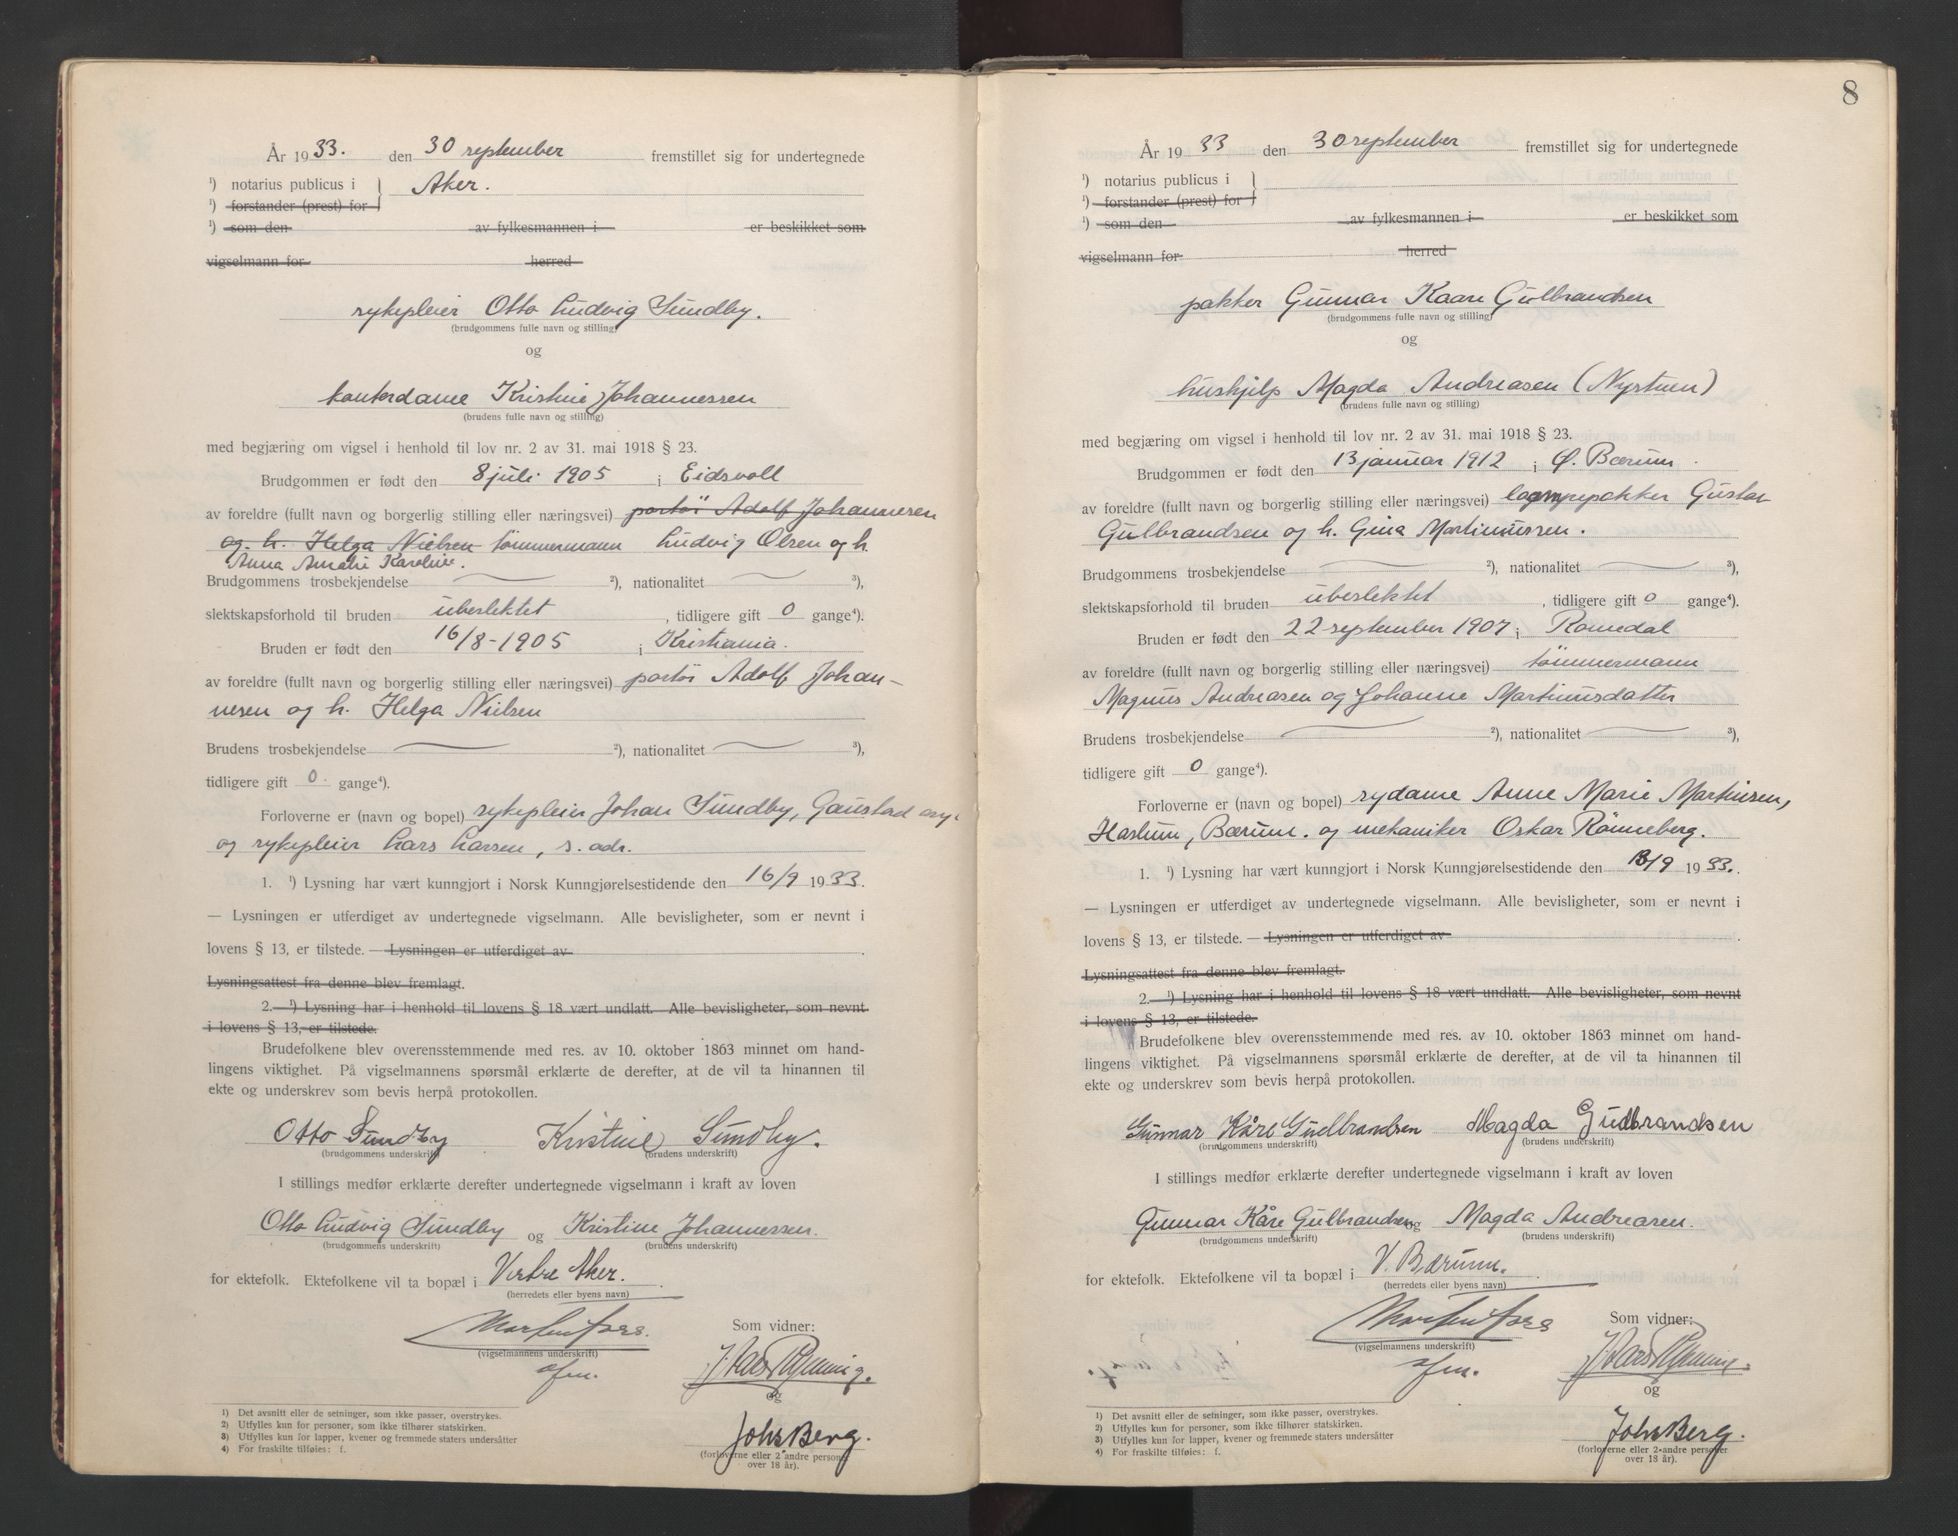 År 1933. den 30 september fremstillet sig for undertegnede
¹) notarius publicus i } Aker.
¹) forstander (prest) for }
¹) som den av fylkesmannen i er beskikket som
vigselmann for herred
sykepleier Otto Ludvig Sundby.
(brudgommens fulle navn og stilling)
og
kontordame Kristine Johannessen
(brudens fulle navn og stilling)
med begjæring om vigsel i henhold til lov nr. 2 av 31. mai 1918 § 23.
Brudgommen er født den 8 juli 1905 i Eidsvoll
av foreldre (fullt navn og borgerlig stilling eller næringsvei) portør Adolf Johannesen
og h. Helga Nielsen tømmermann Ludvig Olsen og h.
Anna Amalie Karoline.
Brudgommens trosbekjendelse ²), nationalitet ³),
slektskapsforhold til bruden ubeslektet, tidligere gift 0 gange⁴).
Bruden er født den 16/8-1905 i Kristiania.
av foreldre (fullt navn og borgerlig stilling eller næringsvei) portør Adolf Johan-
nesen og h. Helga Nielsen
Brudens trosbekjendelse ²), nationalitet ³),
tidligere gift 0. gange⁴).
Forloverne er (navn og bopel) sykepleier Johan Sundby, Gaustad asyl
og sykepleier Lars Larsen, s. adr.
1. ¹) Lysning har vært kunngjort i Norsk Kunngjørelsestidende den 16/9 1933.
— Lysningen er utferdiget av undertegnede vigselmann. Alle bevisligheter, som er nevnt i
lovens § 13, er tilstede. — Lysningen er utferdiget av .
Lysningsattest fra denne blev fremlagt.
2. ¹) Lysning har i henhold til lovens § 18 vært undlatt. Alle bevisligheter, som nevnt
i lovens § 13, er tilstede.
Brudefolkene blev overensstemmende med res. av 10. oktober 1863 minnet om hand-
lingens viktighet. På vigselmannens spørsmål erklærte de derefter, at de vil ta hinannen til
ekte og underskrev som bevis herpå protokollen.
Otto Sundby Kristine Sundby.
(brudgommens underskrift) (brudens underskrift)
I stillings medfør erklærte derefter undertegnede vigselmann i kraft av loven
Otto Ludvig Sundby og Kristine Johannessen.
(brudgommens underskrift) (brudens underskrift)
for ektefolk. Ektefolkene vil ta bopæl i Vestre Aker.
(herredets eller byens navn)
Som vidner:
(vigselmannens underskrift)
og
Johs Berg.
(forloverne eller 2 andre personer
over 18 år).
1) Det avsnitt eller de setninger, som ikke passer, overstrykes.
2) Utfylles kun for personer, som ikke tilhører statskirken.
3) Utfylles kun for lapper, kvener og fremmede staters undersåtter
4) For fraskilte tilføies: f.
8
År 1933 den 30 september fremstillet sig for undertegnede
¹) notarius publicus i }
¹) forstander (prest) for }
¹) som den av fylkesmannen i er beskikket som
vigselmann for herred
pakker Gunnar Kaare Gulbrandsen
(brudgommens fulle navn og stilling)
og
hushjelp Magda Andreasen (Nystuen)
(brudens fulle navn og stilling)
med begjæring om vigsel i henhold til lov nr. 2 av 31. mai 1918 § 23.
Brudgommen er født den 13 januar 1912 i Ø. Bærum.
av foreldre (fullt navn og borgerlig stilling eller næringsvei) lampepakker Gustav
Gulbrandsen og h. Gina Martinussen.
Brudgommens trosbekjendelse ²), nationalitet ³),
slektskapsforhold til bruden ubeslektet, tidligere gift 0 gange⁴).
Bruden er født den 22 september 1907 i Romedal
av foreldre (fullt navn og borgerlig stilling eller næringsvei) tømmermann
Magnus Andreasen og Johanne Martinusdatter
Brudens trosbekjendelse ²), nationalitet ³),
tidligere gift 0 gange⁴).
Forloverne er (navn og bopel) sydame Anne Marie Martinsen,
Haslum, Bærum. og mekaniker Oskar Rønneberg.
1. ¹) Lysning har vært kunngjort i Norsk Kunngjørelsestidende den /9 1933.
— Lysningen er utferdiget av undertegnede vigselmann. Alle bevisligheter, som er nevnt i
lovens § 13, er tilstede. — Lysningen er utferdiget av .
Lysningsattest fra denne blev fremlagt.
2. ¹) Lysning har i henhold til lovens § 18 vært undlatt. Alle bevisligheter, som nevnt
i lovens § 13, er tilstede.
Brudefolkene blev overensstemmende med res. av 10. oktober 1863 minnet om hand-
lingens viktighet. På vigselmannens spørsmål erklærte de derefter, at de vil ta hinannen til
ekte og underskrev som bevis herpå protokollen.
Gunnar Kåre Gudbrandsen Magda Gudbrandsen
(brudgommens underskrift) (brudens underskrift)
I stillings medfør erklærte derefter undertegnede vigselmann i kraft av loven
Gunnar Kåre Gulbrandsen og Magda Andreasen.
(brudgommens underskrift) (brudens underskrift)
for ektefolk. Ektefolkene vil ta bopæl i V. Bærum.
(herredets eller byens navn)
Som vidner:
(vigselmannens underskrift)
og
Johs Berg.
(forloverne eller 2 andre personer
over 18 år).
1) Det avsnitt eller de setninger, som ikke passer, overstrykes.
2) Utfylles kun for personer, som ikke tilhører statskirken.
3) Utfylles kun for lapper, kvener og fremmede staters undersåtter
4) For fraskilte tilføies: f.